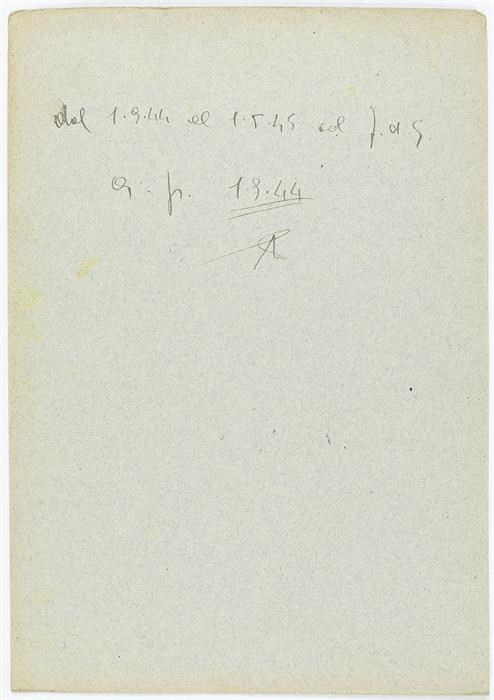 dal 1.9.44 al 1.5.45 col f.d.G.
a. p. 1944